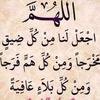 اللهُمَّ
اجْعَل لَنَا مِنْ كُلِّ ضِيقٍ
مَخْرَجًا وَمِنْ كُلِّ هَمٍّ فَرَجًا
وَمِنْ كُلِّ بَلَاءٍ عَافِيَةً